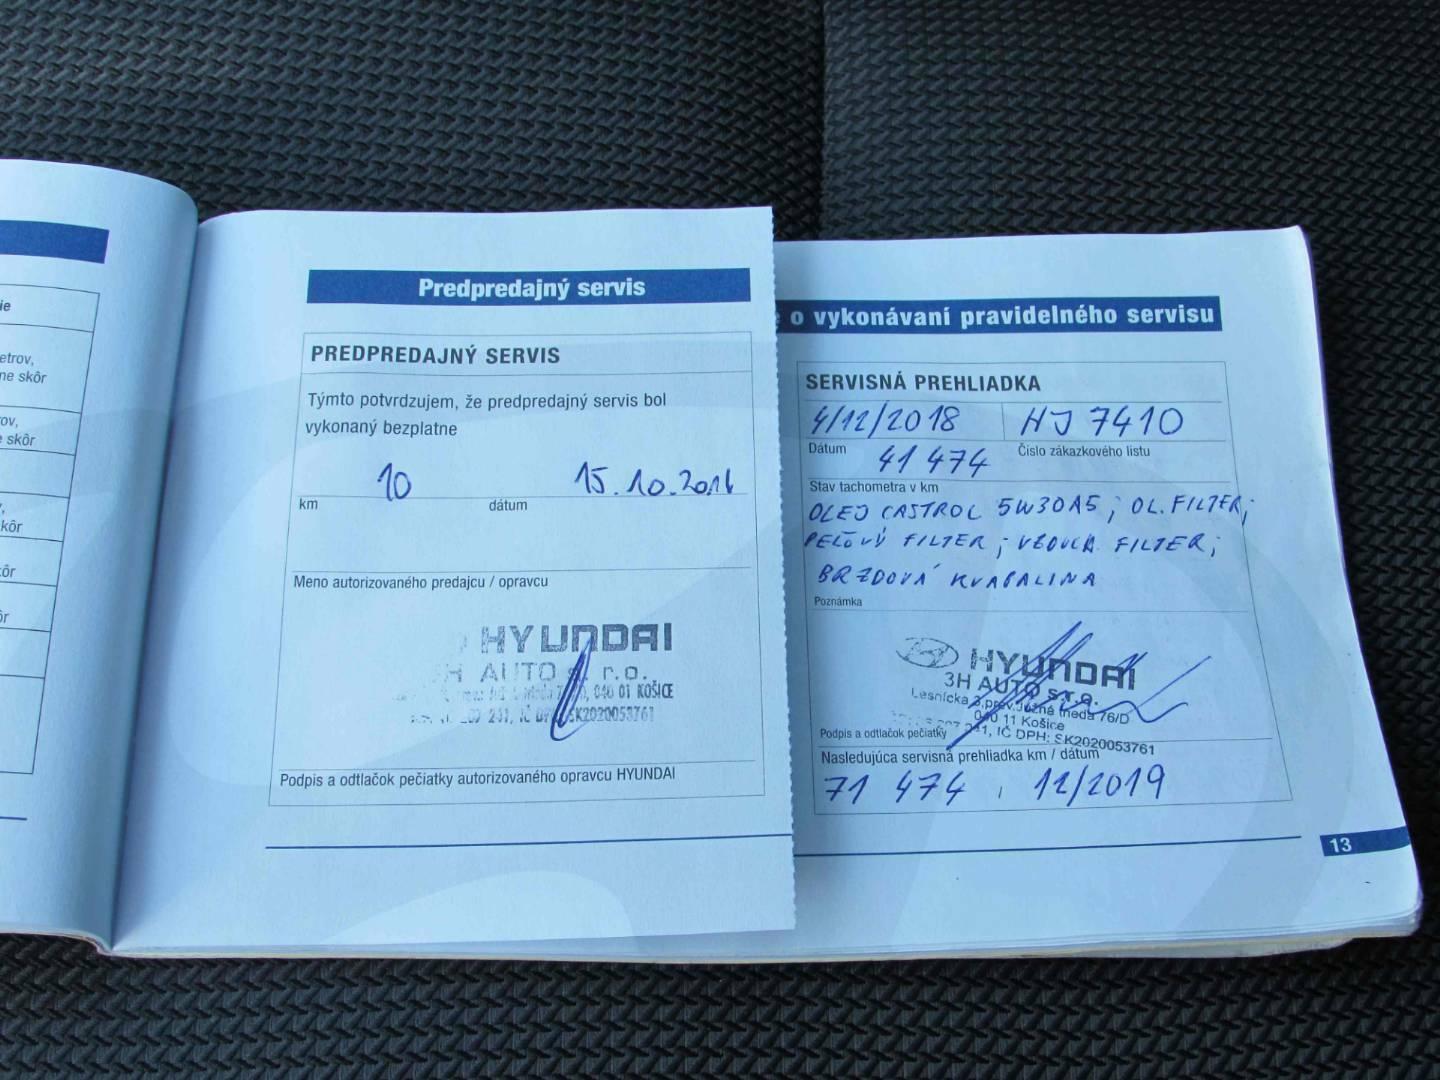 ie
etrov,
ne skôr
ov,
skôr
kôr
ôr
ôr
Predpredajný servis
PREDPREDAJNÝ SERVIS
Týmto potvrdzujem, že predpredajný servis bol
vykonaný bezplatne
10 15.10.2016
km dátum
Meno autorizovaného predajcu / opravcu
HYUNDAI
3H AUTO s. r.o.
040 01 KOŠICE
241, IČ DPH: SK2020053761
Podpis a odtlačok pečiatky autorizovaného opravcu HYUNDAI
o vykonávaní pravidelného servisu
SERVISNÁ PREHLIADKA
4/12/2018 HJ 7410
Dátum Číslo zákazkového listu
41 474
Stav tachometra v km
OLEJ CASTROL 5W30A5; OL. FILTER;
PEĽOVÝ FILTER; VZDUCH. FILTER;
BRZDOVÁ KVAPALINA
Poznámka
HYUNDAI
3H AUTO s.r.o.
Lesnícka 3,prev.Južná trieda 76/D
040 11 Košice
241, IČ DPH: SK2020053761
Podpis a odtlačok pečiatky
Nasledujúca servisná prehliadka km / dátum
71 474 , 12/2019
13